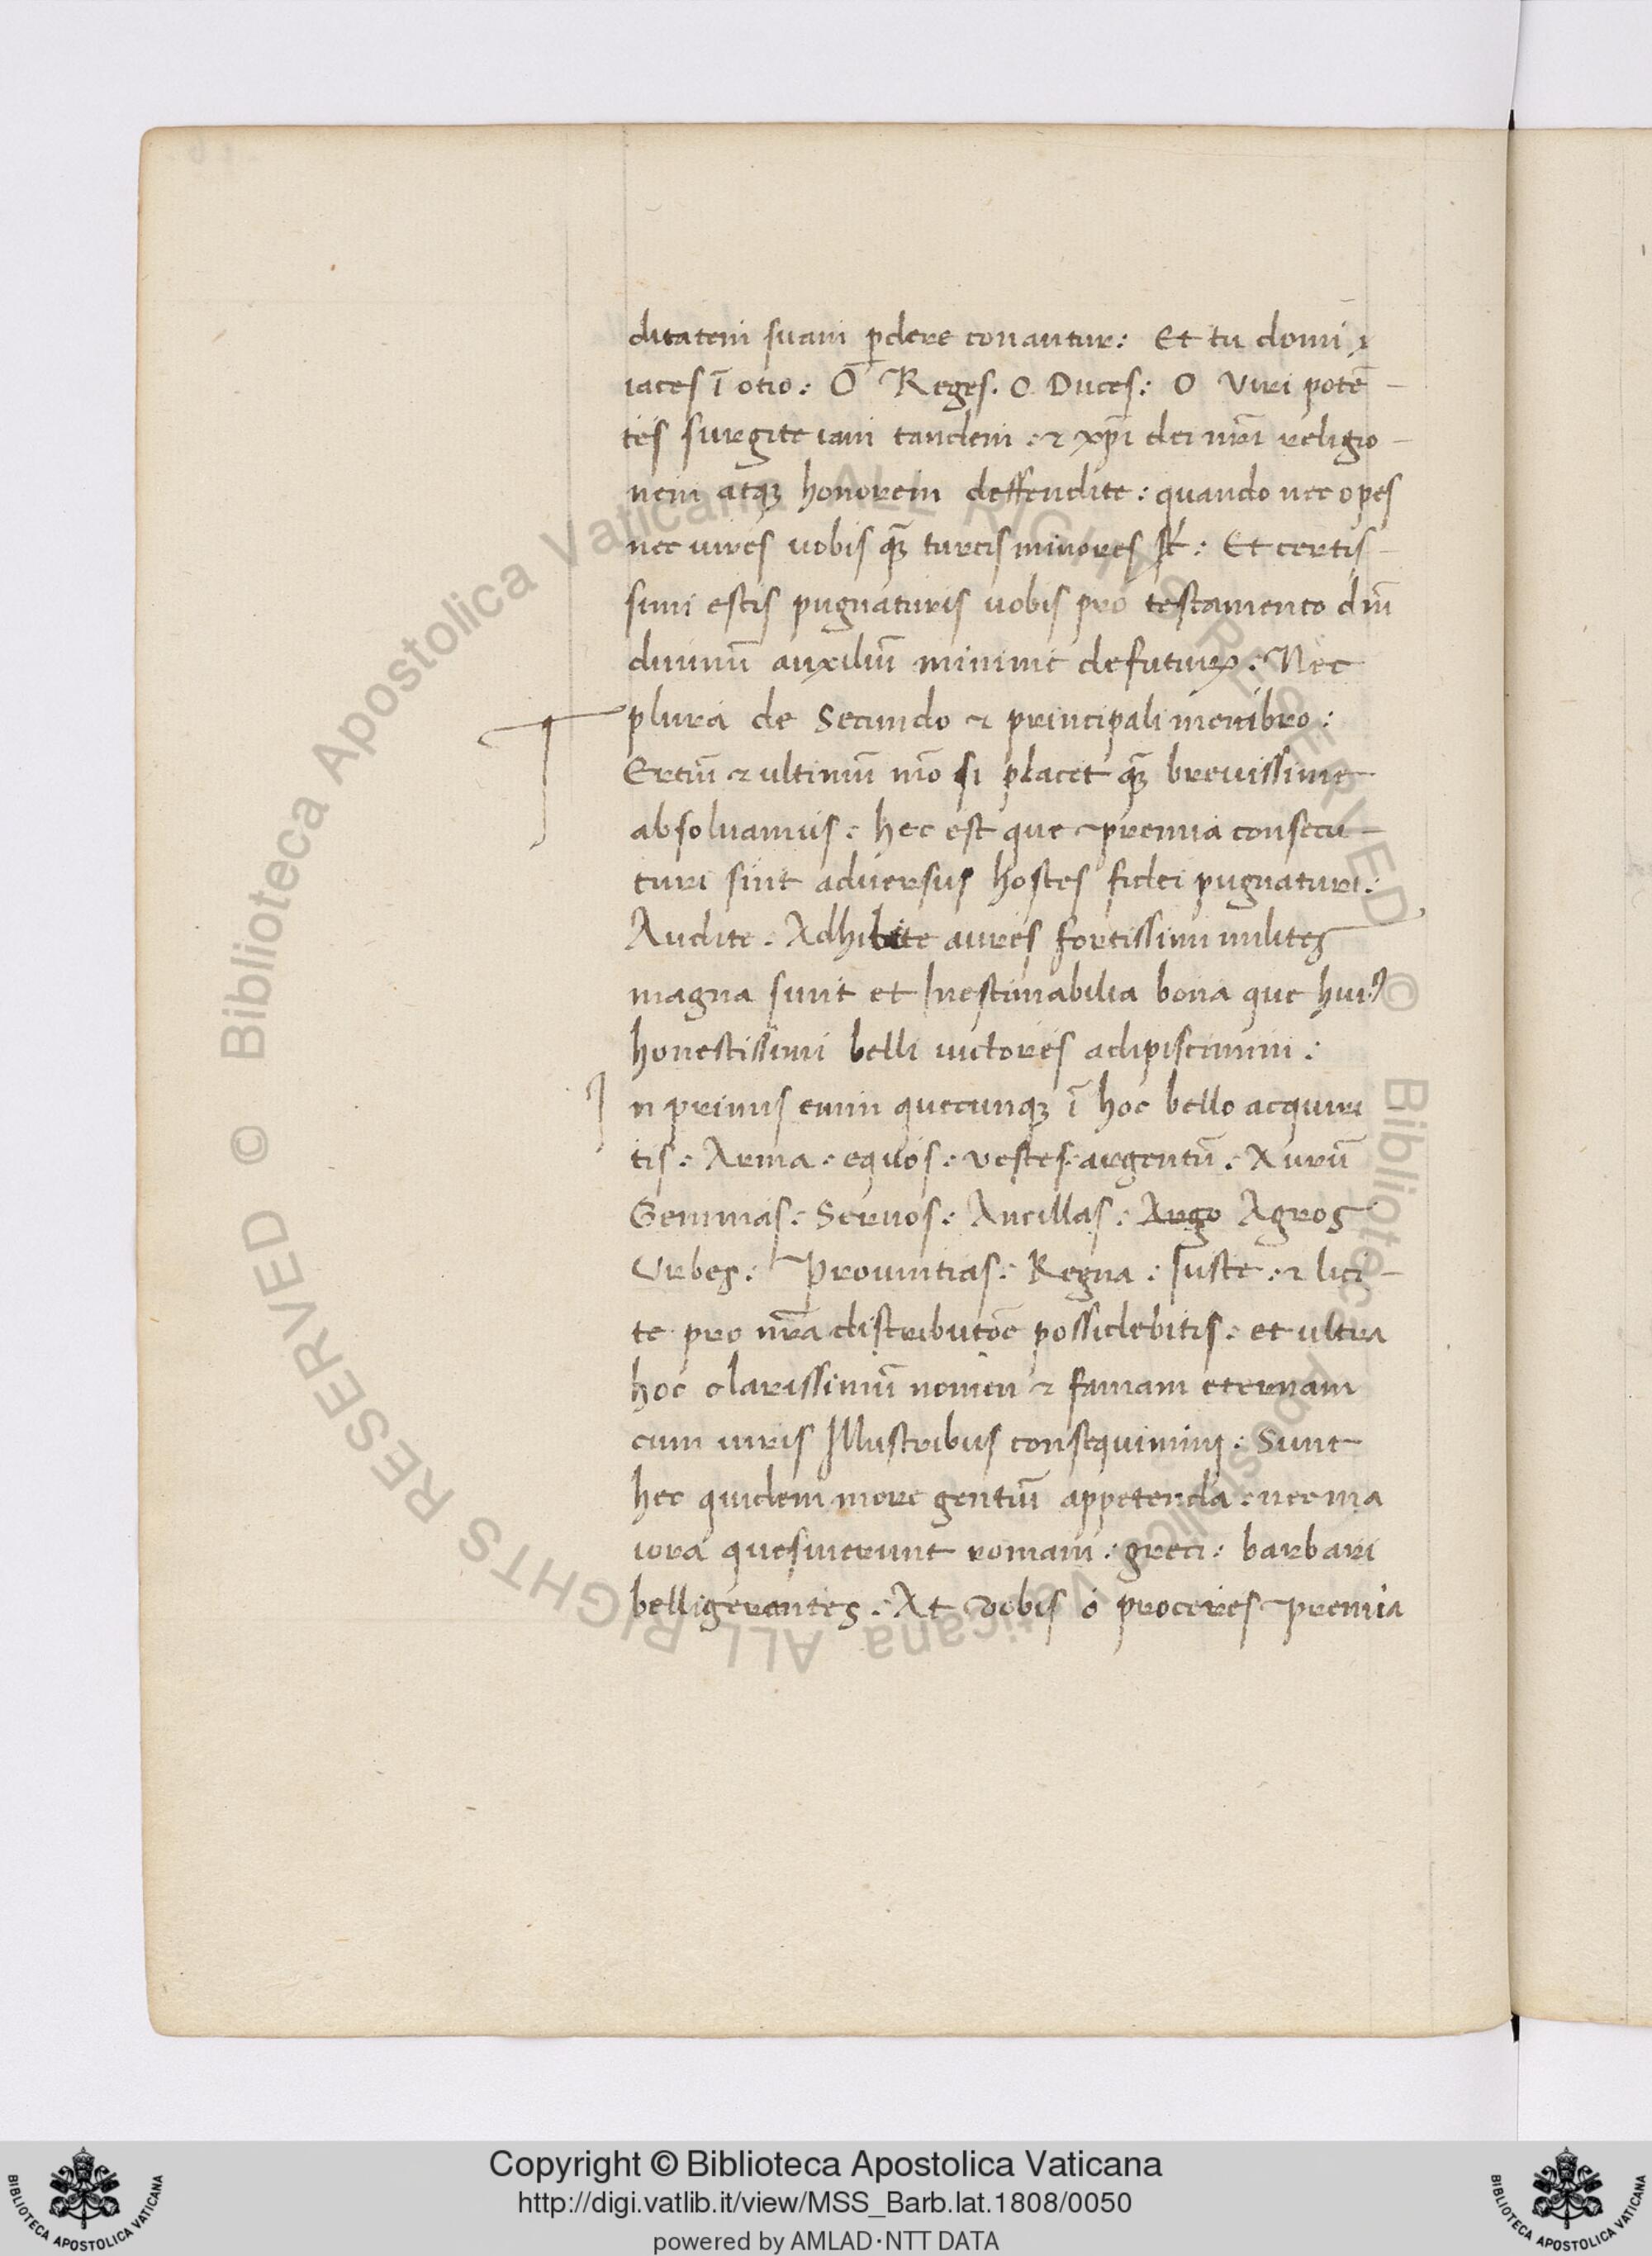 ditatem suam ꝑdere conantur: Et tu domi
iaces ī otio: O Reges. O Duces: O Viri potē-
tes surgite iam tandem: ⁊ xp̄i dei nr̄i religio-
nem atqꝫ honorem deffendite: quando nec opes
nec uires uobis qꝫ̄ turcis minores st̄: Et certis-
simi estis pugnaturis uobis pro testamento diū
diuinū auxiliū minime defuturꝝ: Nec
plura de Secundo ⁊ principali membro:
TErtiū ⁊ ultimū mō si placet qꝫ̄ breuissime
absoluamus: hec est que premia consecu-
turi sint aduersus hostes fidei pugnaturi:
Audite: Adhibete aures fortissimi milites
magna sunt et Inestimabilia bona que huiꝰ
honestissimi belli uictores adipiscimini:
In primis enim quecunqꝫ ī hoc bello acquiri
tis: Arma: equos: vestes: argentū: Aurū
Gemmas: Seruos: Ancillas: Argo Agros
Vrbes: Prouintias: Regna: Iuste: ⁊ lici-
te pro nr̄a distributōe possidebitis: et ultra
hoc clarissimū nomen ⁊ famam eternam
cum uiris Illustribus consequimini: Sunt
hec quidem more gentiū appetenda: nec ma
iora quesiuerunt romani: greci: barbari
belligerantes: At vobis ó proceres premia
Copyright © Biblioteca Apostolica Vaticana
http://digi.vatlib.it/view/MSS_Barb.lat.1808/0050
powered by AMLAD·NTT DATA
BIBLIOTECA APOSTOLICA VATICANA
BIBLIOTECA APOSTOLICA VATICANA
© Biblioteca Apostolica Vaticana ALL RIGHTS RESERVED © Biblioteca Apostolica Vaticana ALL RIGHTS RESERVED